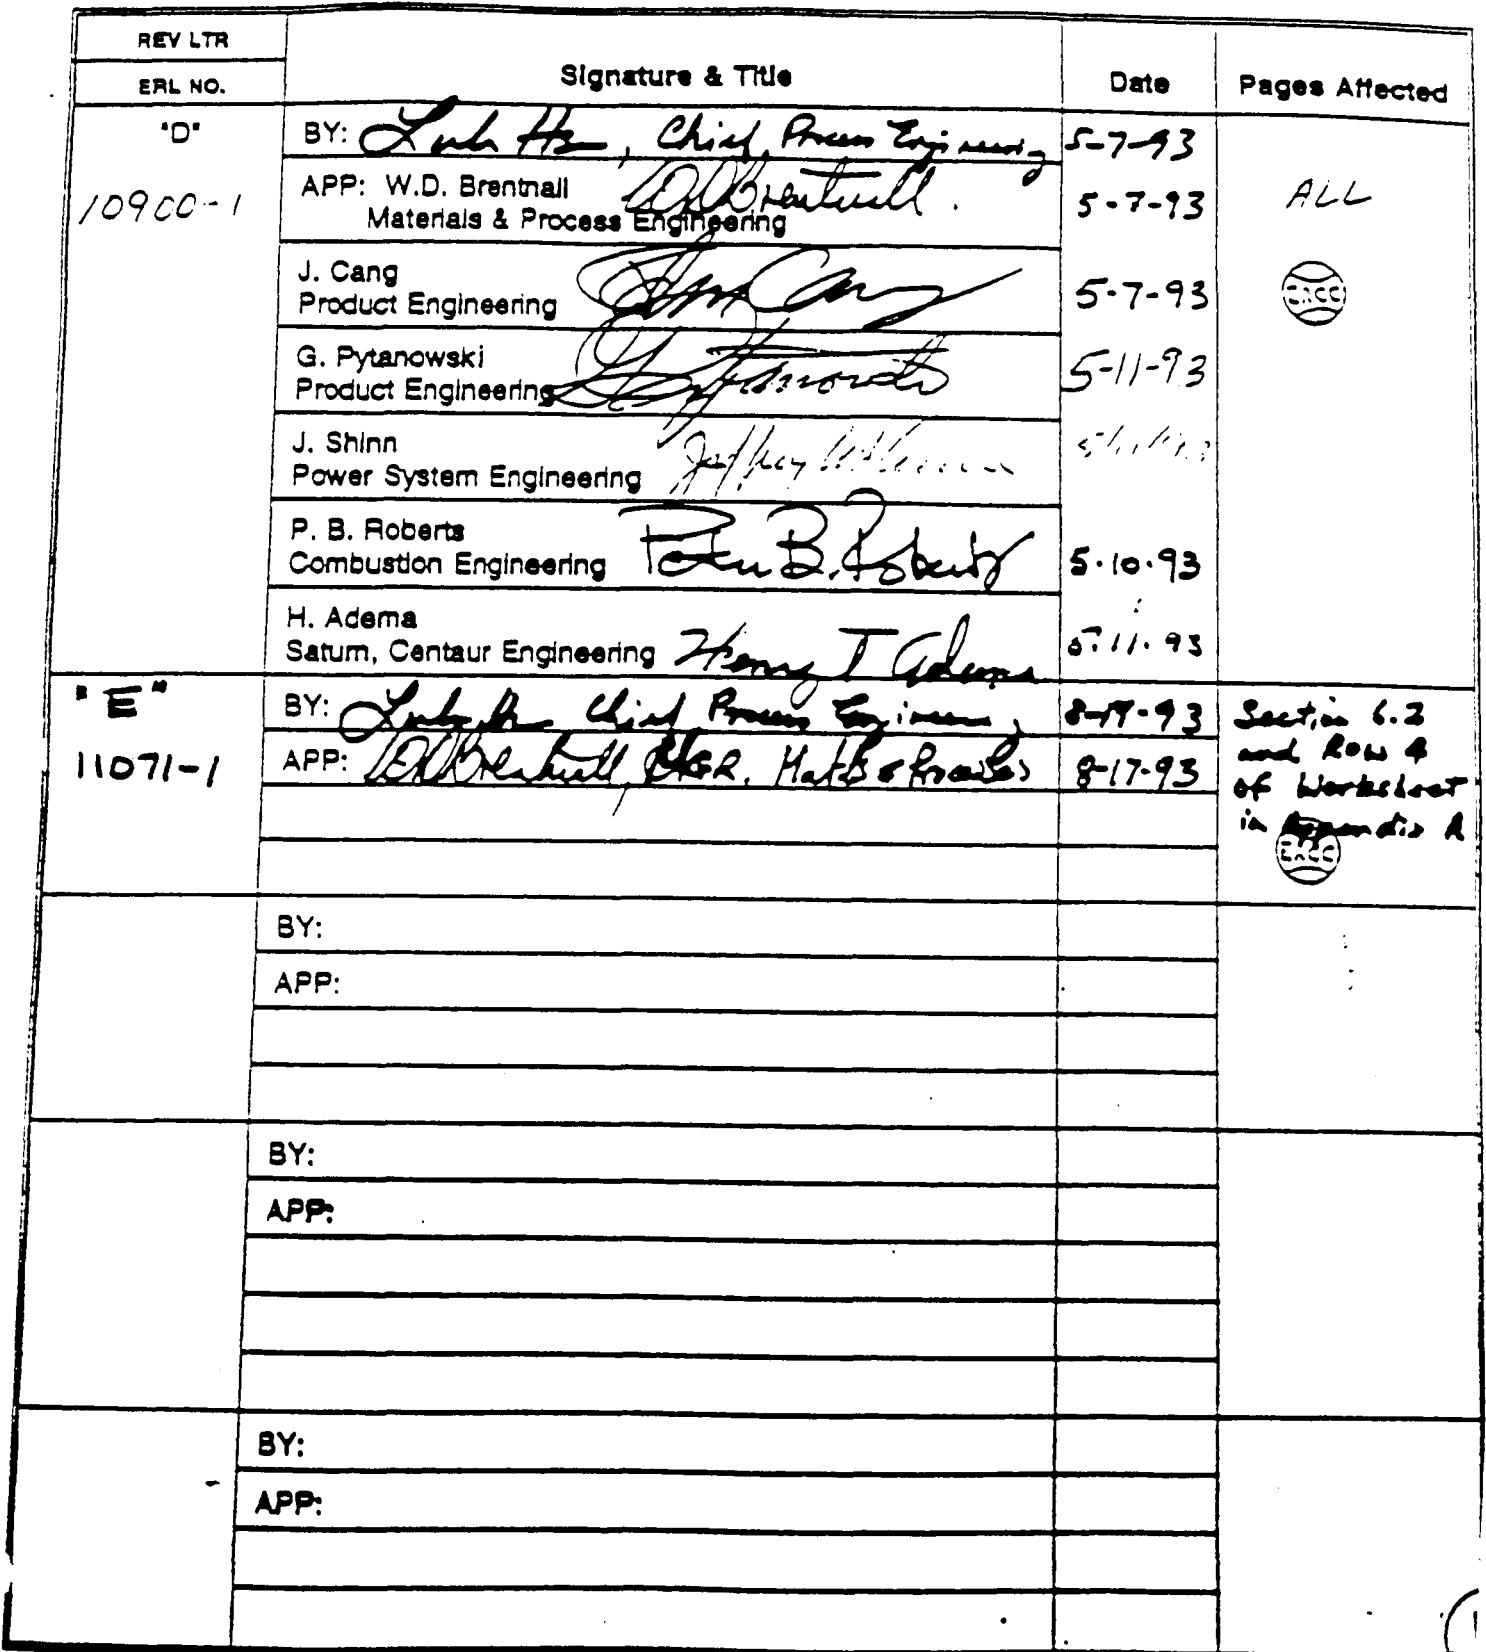 REV LTR
ERL NO.
Signature & Title
Date
Pages Affected
"D"
10900-1
BY: Chief, Process Engineering 5-7-93
ALL
APP: W.D. Brentnall 5-7-93
Materials & Process Engineering
J. Cang
Product Engineering 5-7-93
G. Pytanowski
Product Engineering 5-11-93
J. Shinn
Power System Engineering
P. B. Roberts
Combustion Engineering Peter B. Roberts 5.10.93
H. Adema
Saturn, Centaur Engineering Henry T Adema 5.11.93
"E"
11071-1
BY: Chief Process Engineering, 8-17-93
APP: 8-17-93
Section 6.2
and Row 4
of Worksheet
in Appendix A
BY:
APP:
BY:
APP:
BY:
APP: